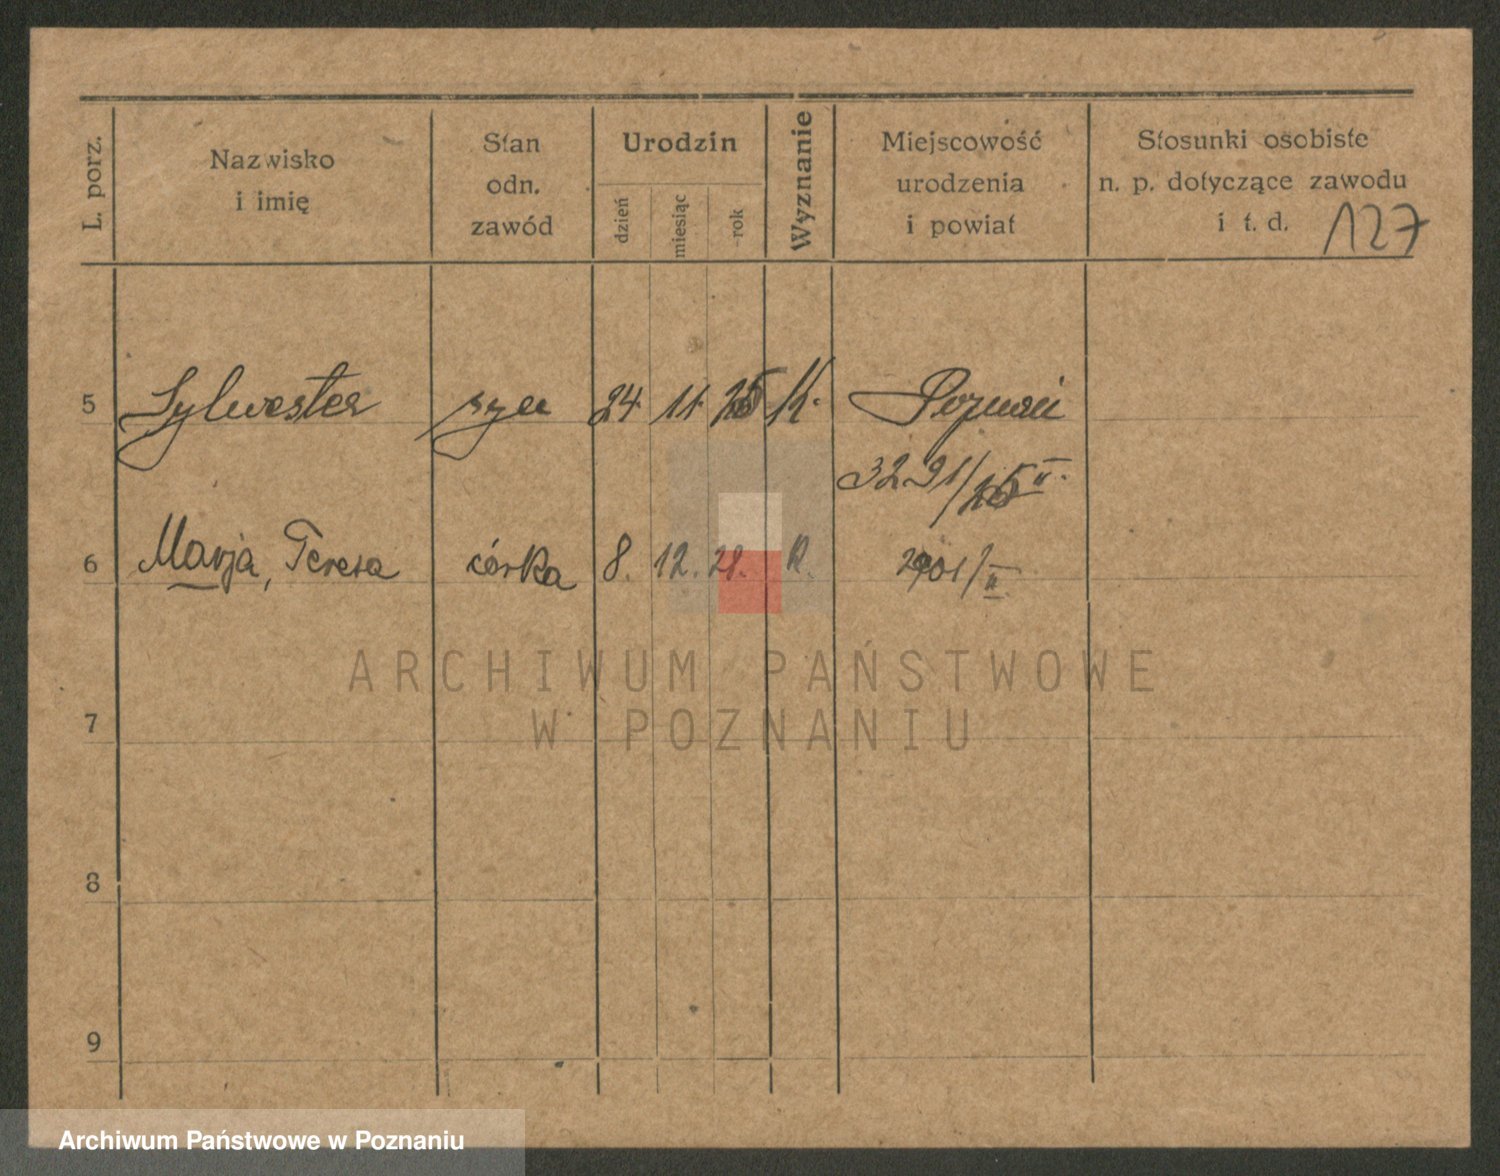 L. porz.
Nazwisko
i imię
Stan
odn.
zawód
Urodzin
dzień
miesiąc
rok
Wyznanie
Miejscowość
urodzenia
i powiat
Stosunki osobiste
n. p. dotyczące zawodu
i t. d.
127
5 Sylwester syn 24. 11. K. Poznań
3291/
6 Marja, Teresa córka 8. 12. 28. K.
ARCHIWUM PAŃSTWOWE
W POZNANIU
7
8
9
Archiwum Państwowe w Poznaniu